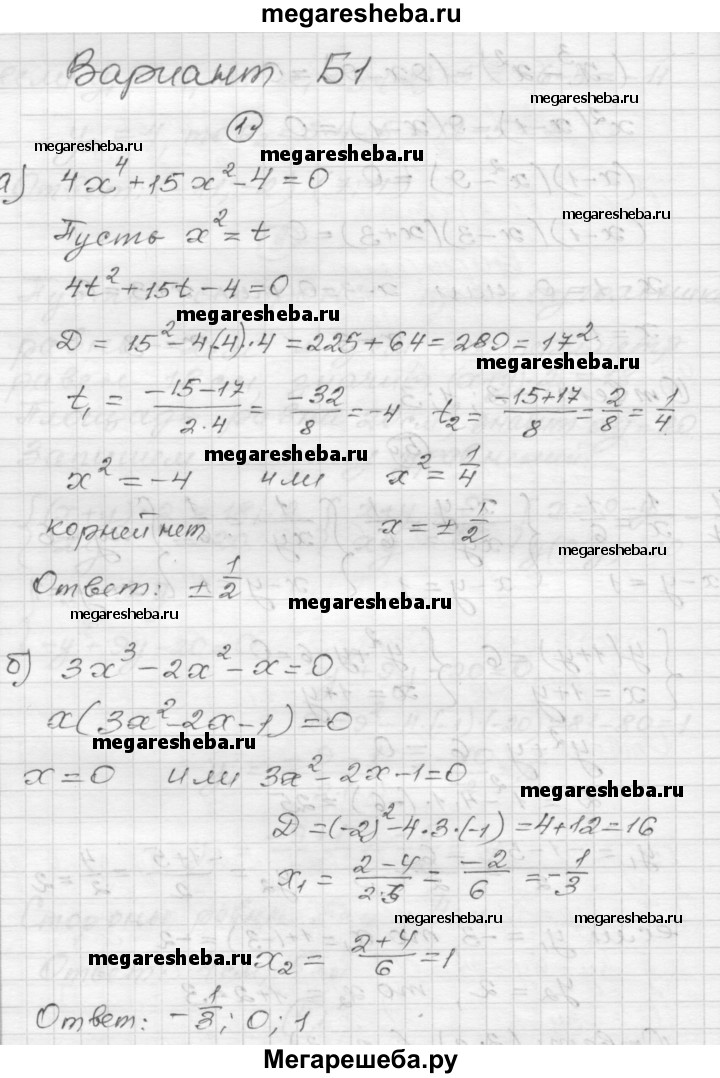 megaresheba.ru
Вариант Б1
megaresheba.ru
1.
megaresheba.ru
megaresheba.ru
а) 4x⁴+15x²-4=0
megaresheba.ru
Пусть x²=t
4t²+15t-4=0
megaresheba.ru
D = 15²-4·(-4)·4=225+64=289=17²
megaresheba.ru
t₁ = (-15-17)/(2·4) = (-32)/8 = -4 t₂ = (-15+17)/8 = 2/8 = 1/4
megaresheba.ru
megaresheba.ru
x²=-4 или x²=1/4
корней нет x=±1/2
megaresheba.ru
Ответ: ±1/2
megaresheba.ru
megaresheba.ru
б) 3x³-2x²-x=0
x(3x²-2x-1)=0
megaresheba.ru
x=0 или 3x²-2x-1=0
megaresheba.ru
D=(-2)²-4·3·(-1)=4+12=16
x₁ = (2-4)/(2·3) = (-2)/6 = -1/3
megaresheba.ru
megaresheba.ru
megaresheba.ru
x₂ = (2+4)/6 = 1
Ответ: -1/3; 0; 1
Мегарешеба.ру